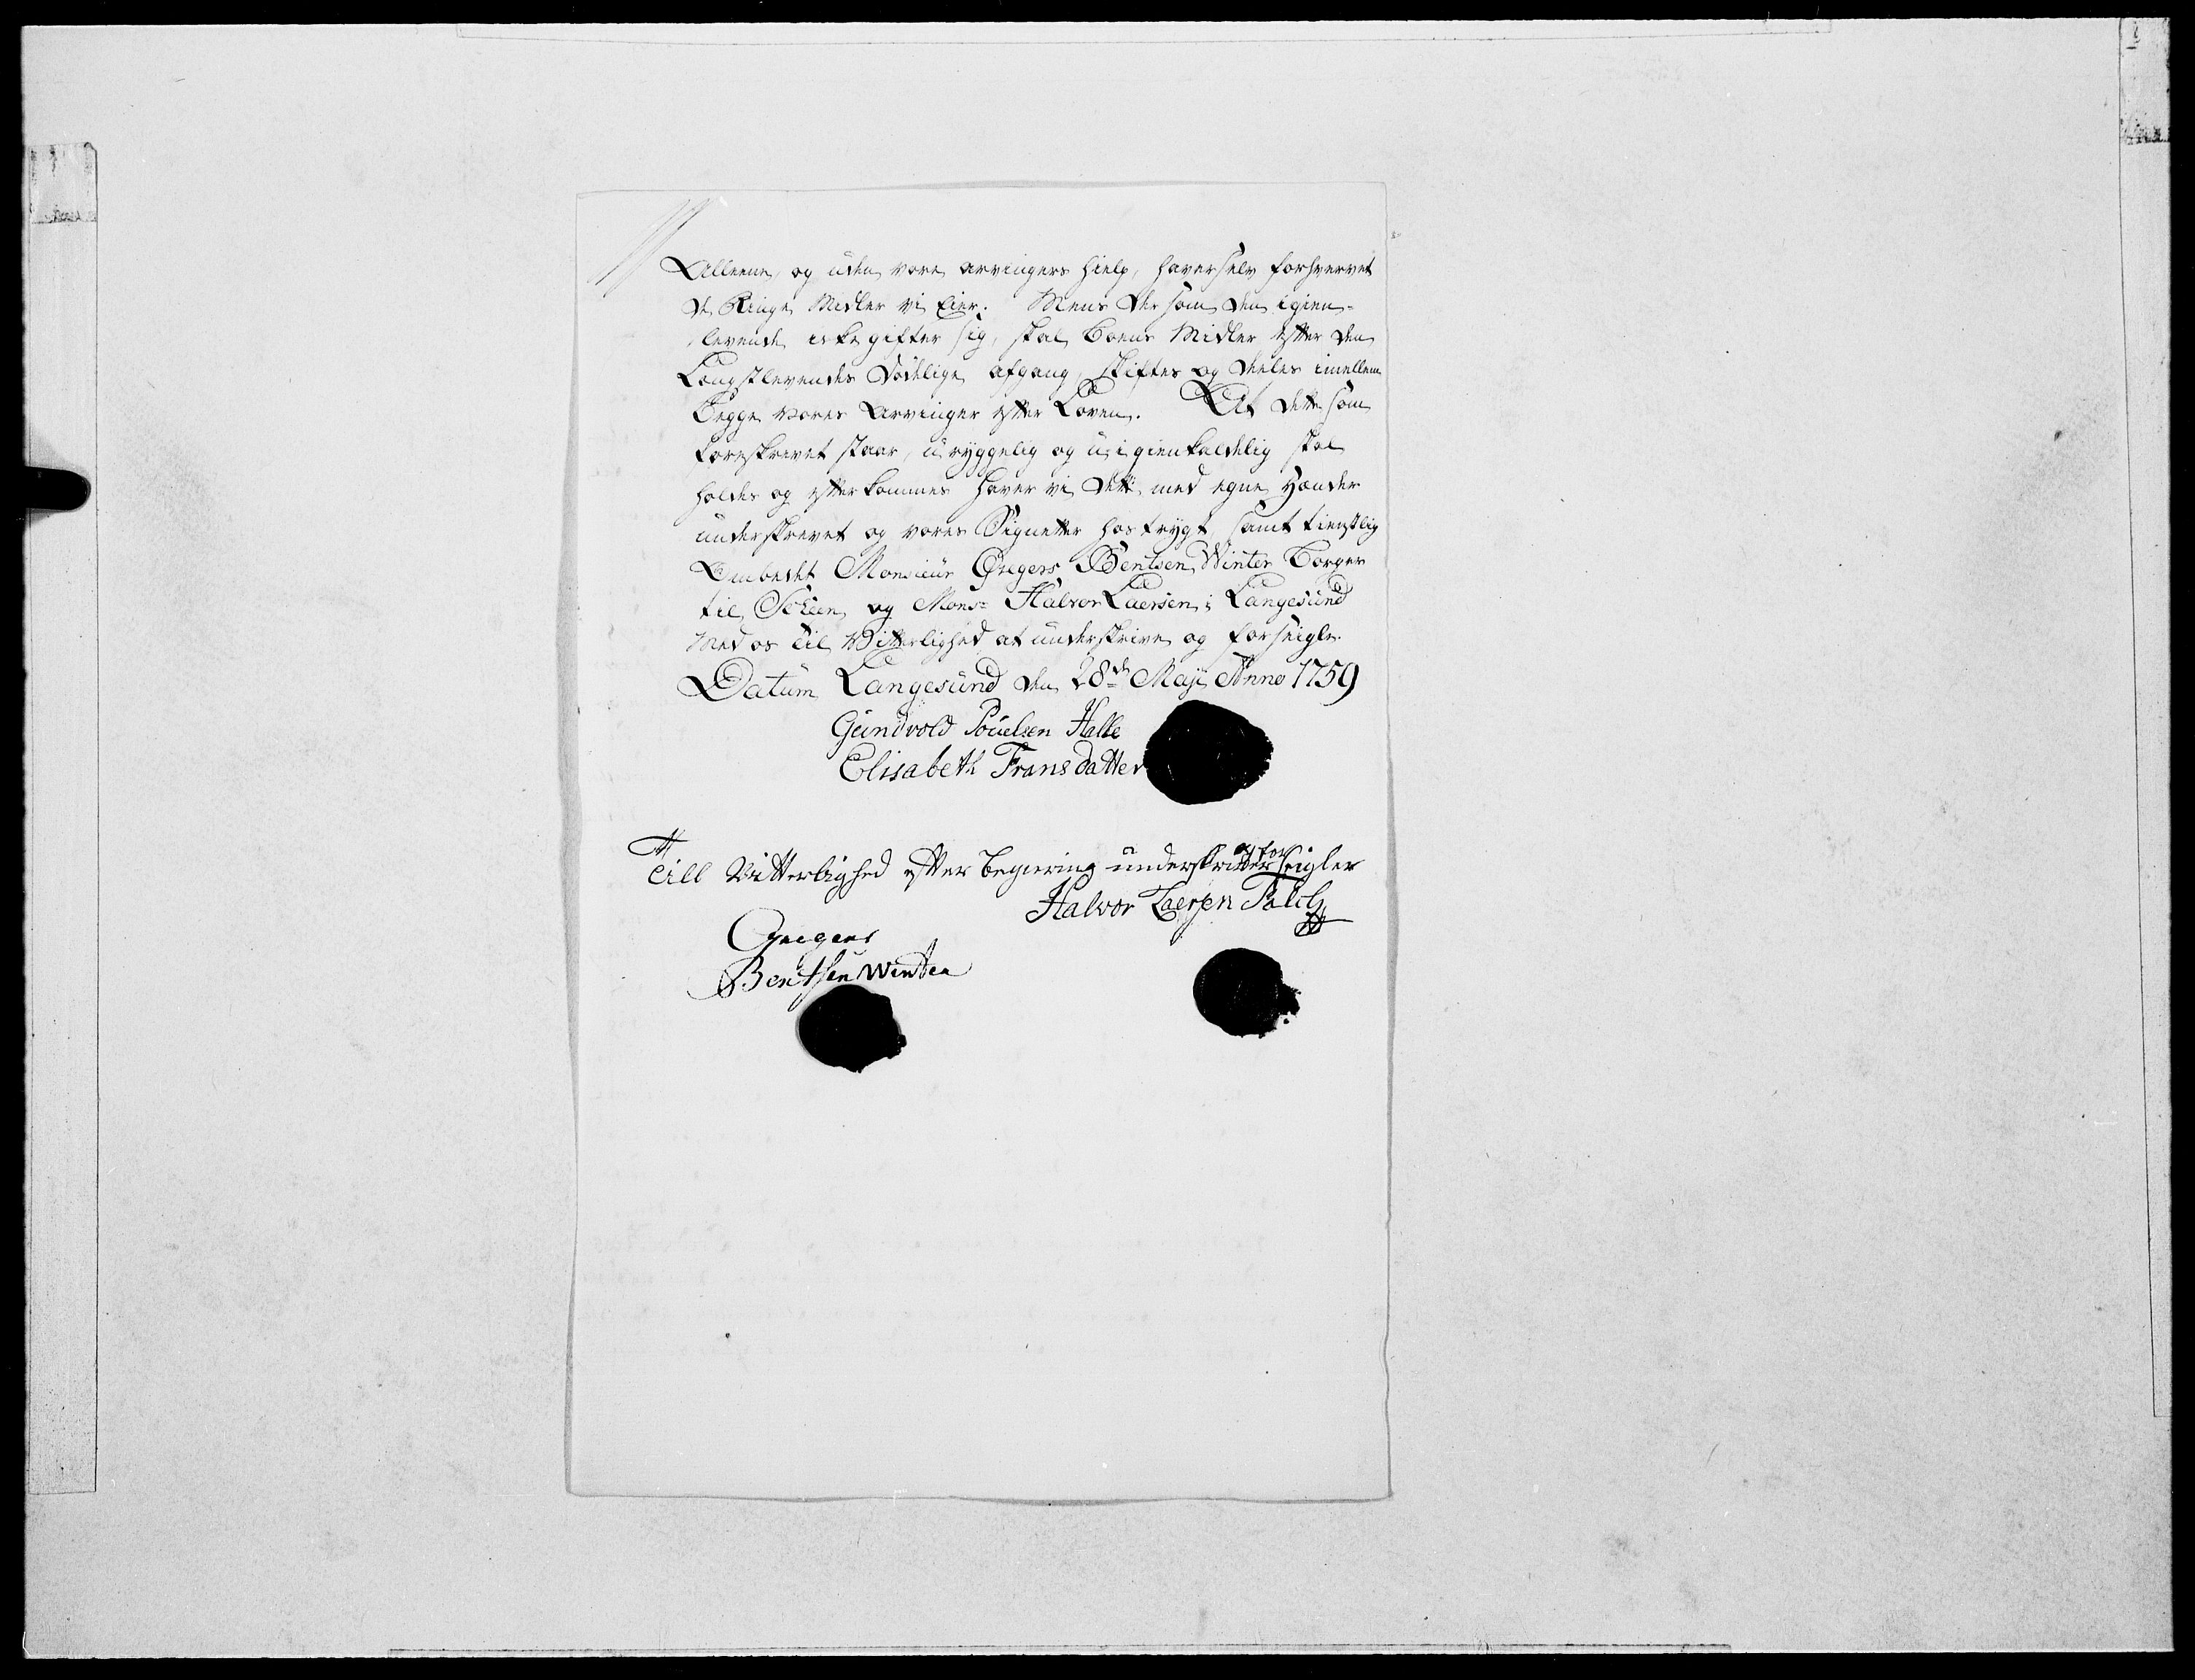 Alleene, og uden vore arvingers hielp, haver selv forhvervet
de Ringe Midler vi Eier. Mens der som den igien-
levende icke gifter sig, skal Boens Midler efter den
Længstlevendes Dødelige afgang, skiftes og deeles imellem
Begge vores Arvinger efter Loven. At dette som
foreskrevet staar, u-ryggelig og u-igienkaldelig skal
holdes og efterkommes haver vi dette med egne Hænder
underskrevet og vores Signetter hostrygt samt tienstlig
Ombedet Monsieur Gregers Bentsen Winter Borger
til Scheen og Mons: Halvor Laersen i Langesund
Med os til Vitterlighed at underskrive og forseigle.
Datum Langesund den 28de Maji Anno 1759
Gundvold Pouelsen Halle
Elisabeth Frans datter
Till Vitterlighed efter begiering underskriver og for seigler
Halvor Laersen
Gregers
Bentsen Winter